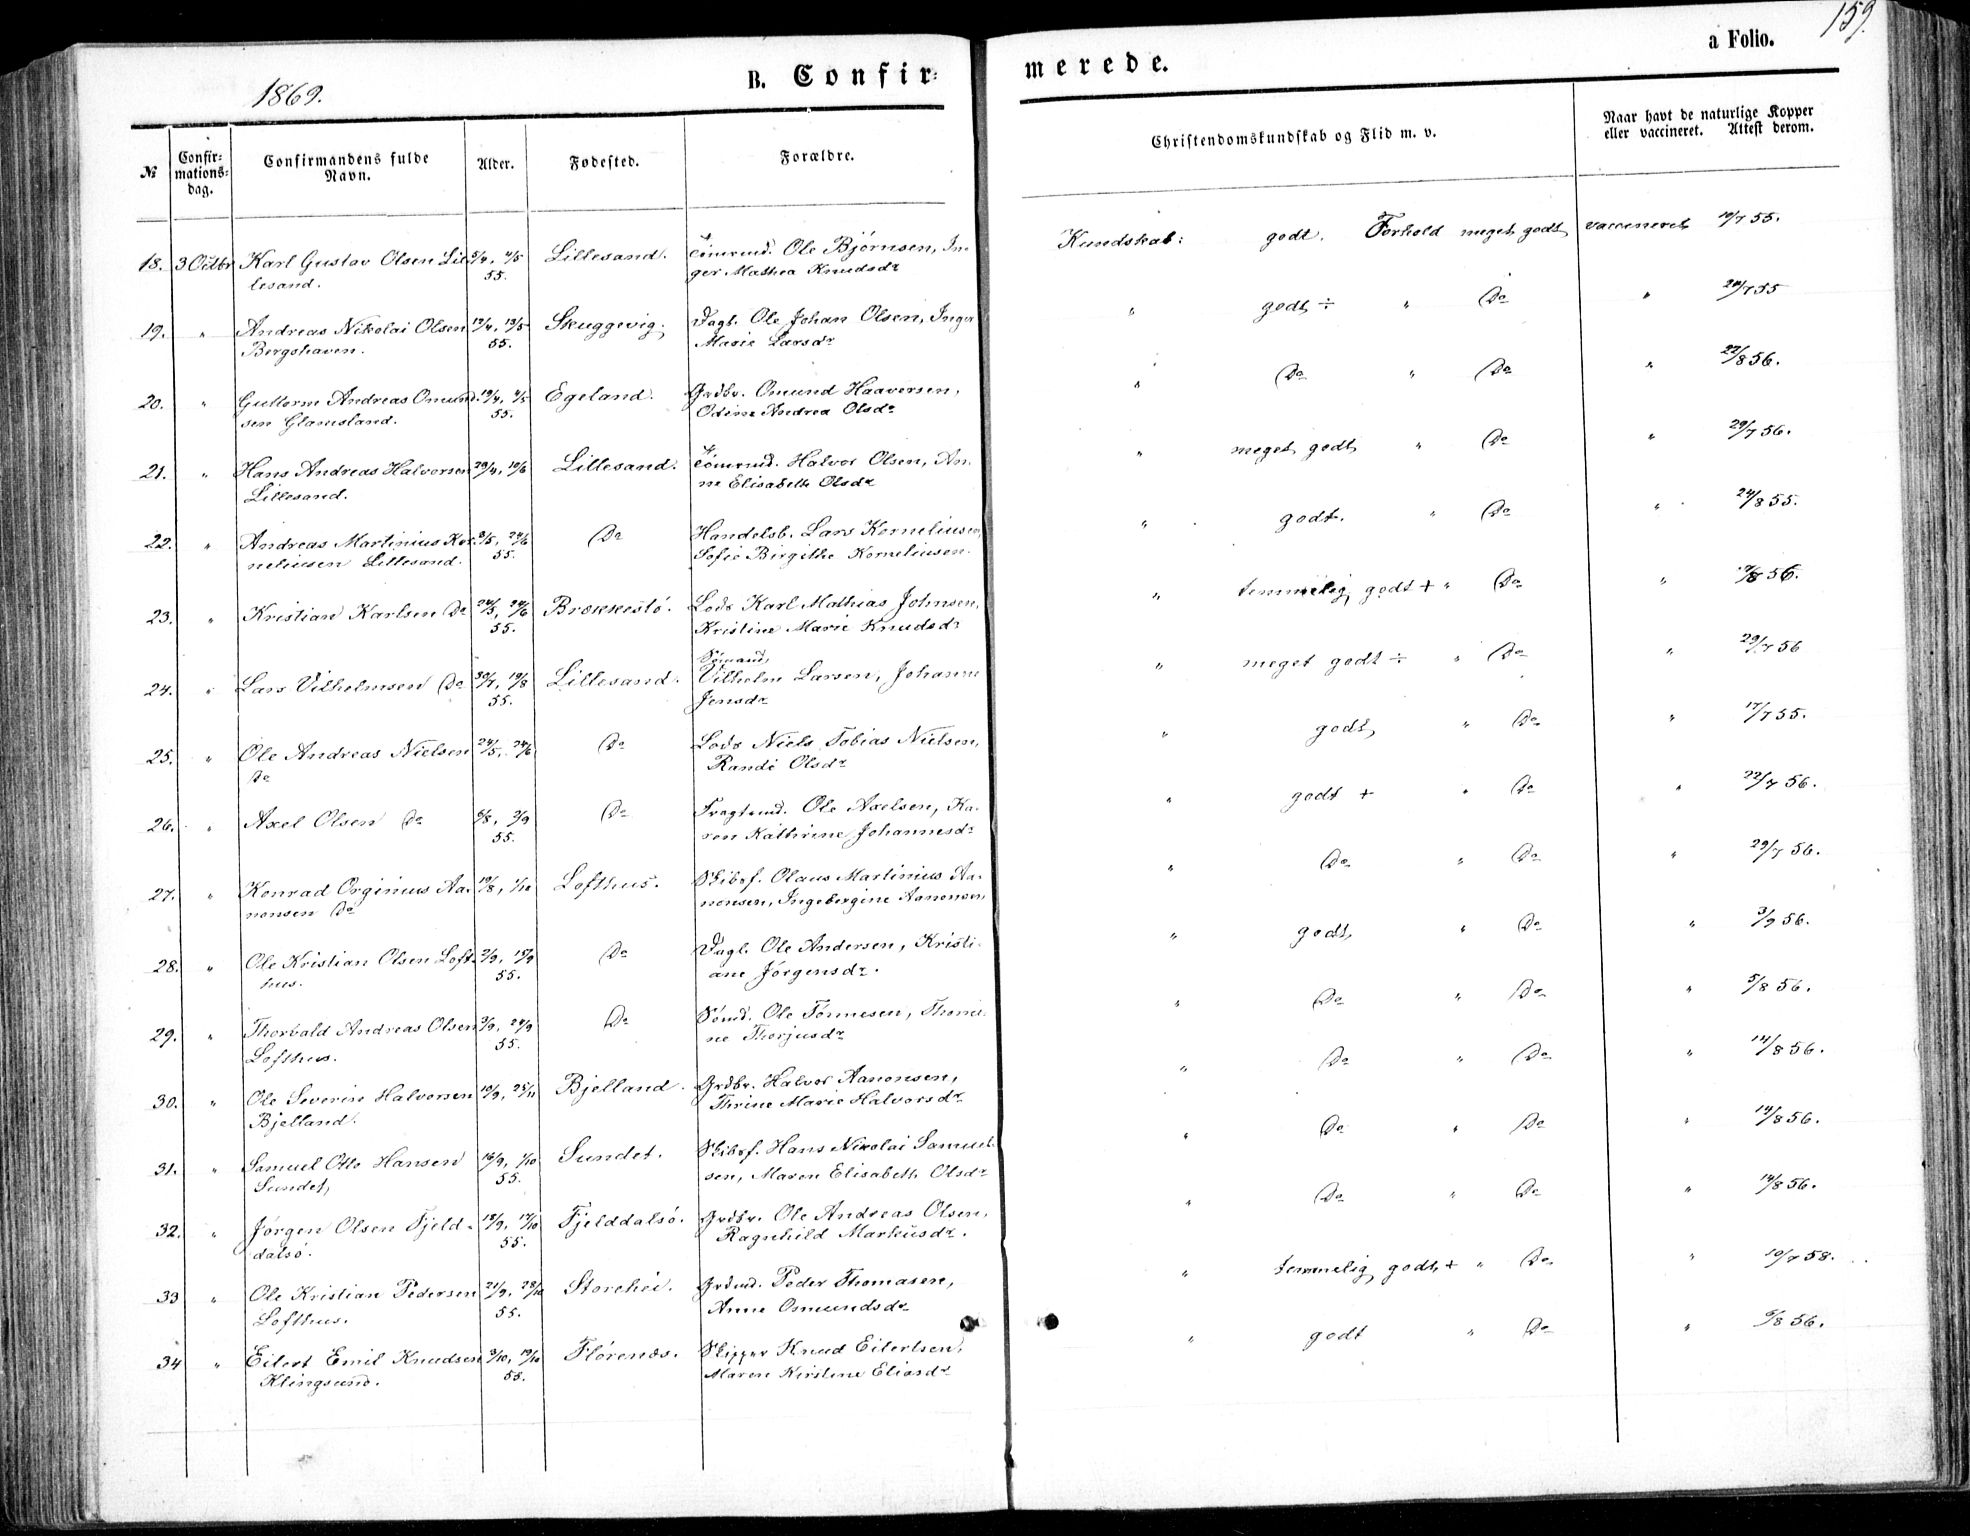 159.
1869.
B. Confir-
merede.
a Folio.
№
Confir-
mations-
dag.
Confirmandens fulde
Navn.
Alder.
Fødested.
Forældre.
Christendomskundskab og Flid m. v.
Naar havt de naturlige Kopper
eller vaccineret. Attest derom.
18. 3 Octbr Karl Gustav Olsen Lil- Lillesand. Tømrmd. Ole Bjørnsen, In-
lesand. 55. ger Mathea Knudsdr
Kundskab: godt. Forhold meget godt vaccineret 19/7 55.
19. " Andreas Nikolai Olsen 12/4, 13/5 Skuggevig. Dagl. Ole Johan Olsen, Inger
Bergshaven. 55. Marie Larsdr
" godt ÷ " Do " 24/7 55
20. " Guttorm Andreas Omund- Egeland. Grdbr. Omund Haaversen,
sen Glamsland. 55. Odine Andrea Olsdr
" Do " Do " 22/8 56.
21. " Hans Andreas Halvorsen 29/4, 10/6 Lillesand. Tømrmd. Halvor Olsen, An-
Lillesand. ne Elisabeth Olsdr
" meget godt " Do " 29/7 56.
22. " Andreas Martinius Kor- Do Handelsb. Lars Korneliusen,
neliusen Lillesand. 55. Sofie Birgithe Korneliusen.
" godt. " Do " 24/8 55.
23. " Kristian Karlsen Do 24/5, 24/6 Brækkestø. Lods Karl Mathias Johnsen,
55. Kristine Marie Knudsdr
" temmelig godt + " Do " 56.
24. " Lars Vilhelmsen Do 30/7, 19/8 Lillesand. Sømand,
Vilhelm Larsen, Johanne
55. Jensdr
" meget godt ÷ " Do " 29/7 56
25. " Ole Andreas Nielsen 24/5, 24/6 Do Lods Niels Tobias Nielsen,
Do Randi Olsdr
" godt, " Do " 17/7 55.
26. " Axel Olsen Do 6/8, 2/9 Do Fragtmd. Ole Axelsen, Ka-
55. ren Kathrine Johannesdr
" godt + " Do " 22/7 56.
27. " Konrad Orginius Aa- 19/8, 1/10 Lofthus. Skibsf. Olaus Martinius Aa-
nonsen Do nonsen, Ingebergine Aanonsen,
" Do " Do " 29/7 56.
28. " Ole Kristian Olsen Loft- Do Dagl. Ole Andersen, Kristi-
hus. 55. ane Jørgensdr.
" godt, " Do " 3/9 56.
29. " Thorvald Andreas Olsen 3/9, 24/9 Do Sømd. Ole Tønnesen, Thomi-
Lofthus. 55. ne Thorjusdr
" Do " Do " 5/8 56.
30. " Ole Severin Halvorsen 10/9, 25/11 Bjelland. Grdbr. Halvor Aanonsen,
Bjelland. Thrine Marie Halvorsdr
" Do " Do " 14/8 56.
31. " Samuel Otto Hansen 16/9, 1/10 Sundet. Skibsf. Hans Nikolai Samuel-
Sundet, 55. sen, Maren Elisabeth Olsdr
" Do " Do " 14/8 56.
32. " Jørgen Olsen Fjeld- 18/9, 14/10 Fjelddalsø. Grdbr. Ole Andreas Olsen,
dalsø. 55. Ragnhild Markusdr.
" Do " Do " 14/8 56.
33 " Ole Kristian Pedersen 21/9, 28/10 Storehei. Grdmd. Peder Thomasen,
Lofthus. 55. Anne Osmundsdr
" temmelig godt + " Do " 10/7 58.
34 " Eilert Emil Knudsen 9/10, 19/10 Flørenæs. Skipper Knud Eilertsen,
Klingsund. 55. Maren Kirstine Eliasdr
" godt " Do " 6/8 56.